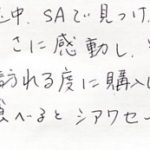 中、SAで見つけ
さに感動し、
訪れる度に購入
食べるとシアワセー